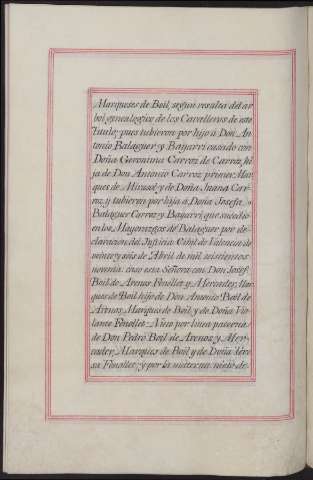 Marqueses de Boil, segun resulta del ar
bol genealogico de los Cavalleros de este
Titulo; pues tubieron por hijo á Don An-
tonio Balaguer, y Bayarri casado con
Doña Geronima Carroz de Carroz, hi
ja de Don Antonio Carroz primer Mar
ques de Mirasol, y de Doña Juana Car-
roz, y tubieron por hija á Doña Josefa
Balaguer Carroz, y Bayarri, que sucedió
en los Mayorazgos de Balaguer por de-
claracion del Justicia Civil de Valencia de
veinte y seis de Abril de mil seiscientos
noventa: caso esta Señora con Don Josef
Boil de Arenos Fenollet, y Mercader, Mar
ques de Boil hijo de Don Antonio Boil de
Arenos, Marques de Boil, y de Doña Vio-
lante Fenollet. Nieto por linea paterna
de Don Pedro Boil de Arenos, y Mer-
cader, Marques de Boil, y de Doña Tere
sa Fenollet; y por la materna nieto de